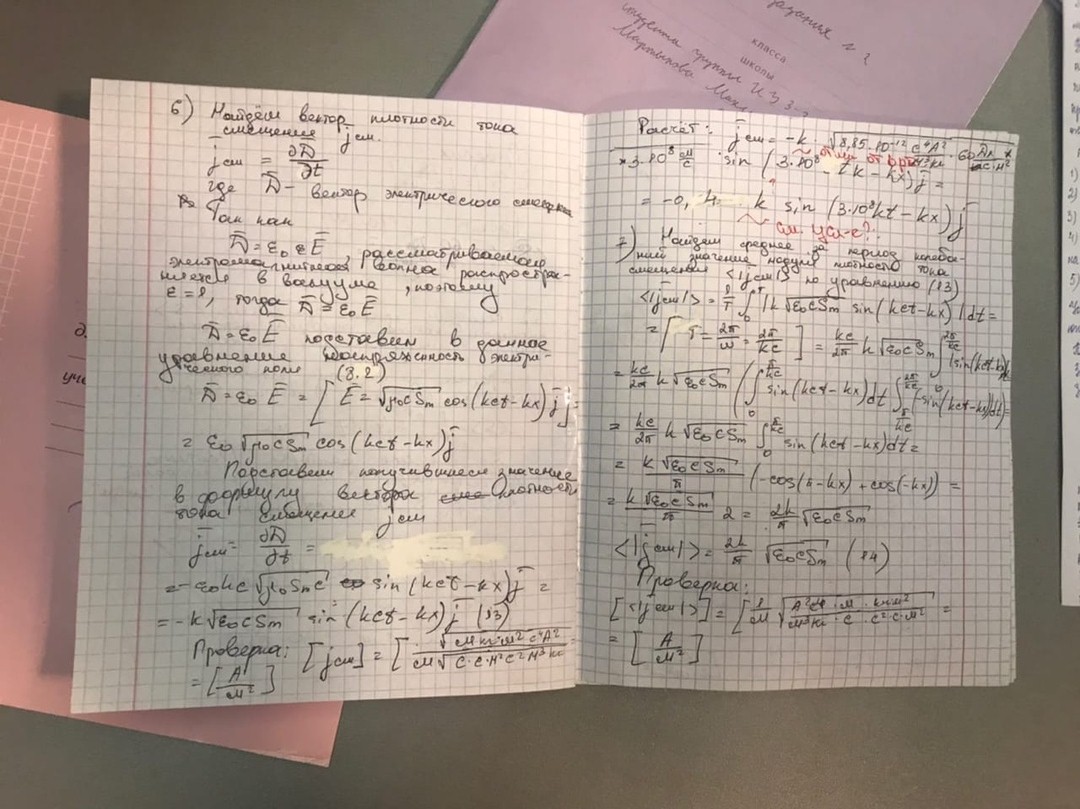 задания №2
класса
школы
студента группы
Мартынова
6) Найдём вектор плотности тока
смещения j̅см.
j̅см = ∂D̅/∂t
где D̅ – вектор электрического смещения
Так как
D̅ = ε₀ε E̅, рассматриваемая
электромагнитная волна распростра-
няется в вакууме, поэтому
ε = 1, тогда D̅ = ε₀ E̅
D̅ = ε₀ E̅ подставим в данное
уравнение напряжённость электри-
ческого поля (8.2)
D̅ = ε₀ E̅ = [E̅ = √(μ₀cSm) cos(kct – kx) j̅] =
= ε₀ √(μ₀cSm) cos(kct – kx) j̅
Подставим получившиеся значение
в формулу вектора плотности
тока смещения j̅см
j̅см = ∂D̅/∂t =
= –ε₀kc √(μ₀Smc) sin(kct – kx) j̅ =
= –k√(ε₀cSm) sin(kct – kx) j̅ (13)
Проверка: [jсм] = [√(м кг·м² с⁴А²) / м√(с·с·м²с²м³кг)] =
= [А/м²]
Расчёт: j̅см = –k · √(8,85·10⁻¹² с⁴А²/м³кг · 60 Дж/с·м² ×
× 3·10⁸ м/с) · sin(3·10⁸ tk – kx) j̅ =
= –0, 4 k sin(3·10⁸kt – kx) j̅
см. усл-е?
7) Найдём среднее за период колеба-
ний значение модуля плотности тока
смещения <|j̅см|> по уравнению (13)
<|j̅см|> = 1/T ∫₀ᵀ |k √(ε₀cSm) sin(kct – kx)| dt =
= [T = 2π/ω = 2π/kc] = kc/2π k √(ε₀cSm) ∫₀^(2π/kc) |sin(kct – kx)|
= kc/2π k √(ε₀cSm) (∫₀^(π/kc) sin(kct – kx)dt ∫_(π/kc)^(2π/kc) (–sin(kct – kx))dt) =
= kc/2π k √(ε₀cSm) ∫₀^(π/kc) sin(kct – kx)dt =
= k√(ε₀cSm)/π (–cos(π – kx) + cos(–kx)) =
= k√(ε₀cSm)/π 2 = 2k/π √(ε₀cSm)
<|j̅см|> = 2k/π √(ε₀cSm) (14)
Проверка:
[<|jсм|>] = [1/м √(А²с⁴·м·кг·м² / м³кг·с·с²·с·м²)] =
= [А/м²]